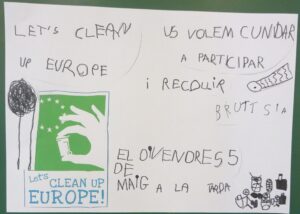 LET'S CLEAN
UP EUROPE
US VOLEM CUNDAR
A PARTICIPAR
I RECOLLIR
BRUTTSIA
Let's
CLEAN UP
EUROPE!
EL DIVENDRES 5
DE
MAIG A LA TARDA